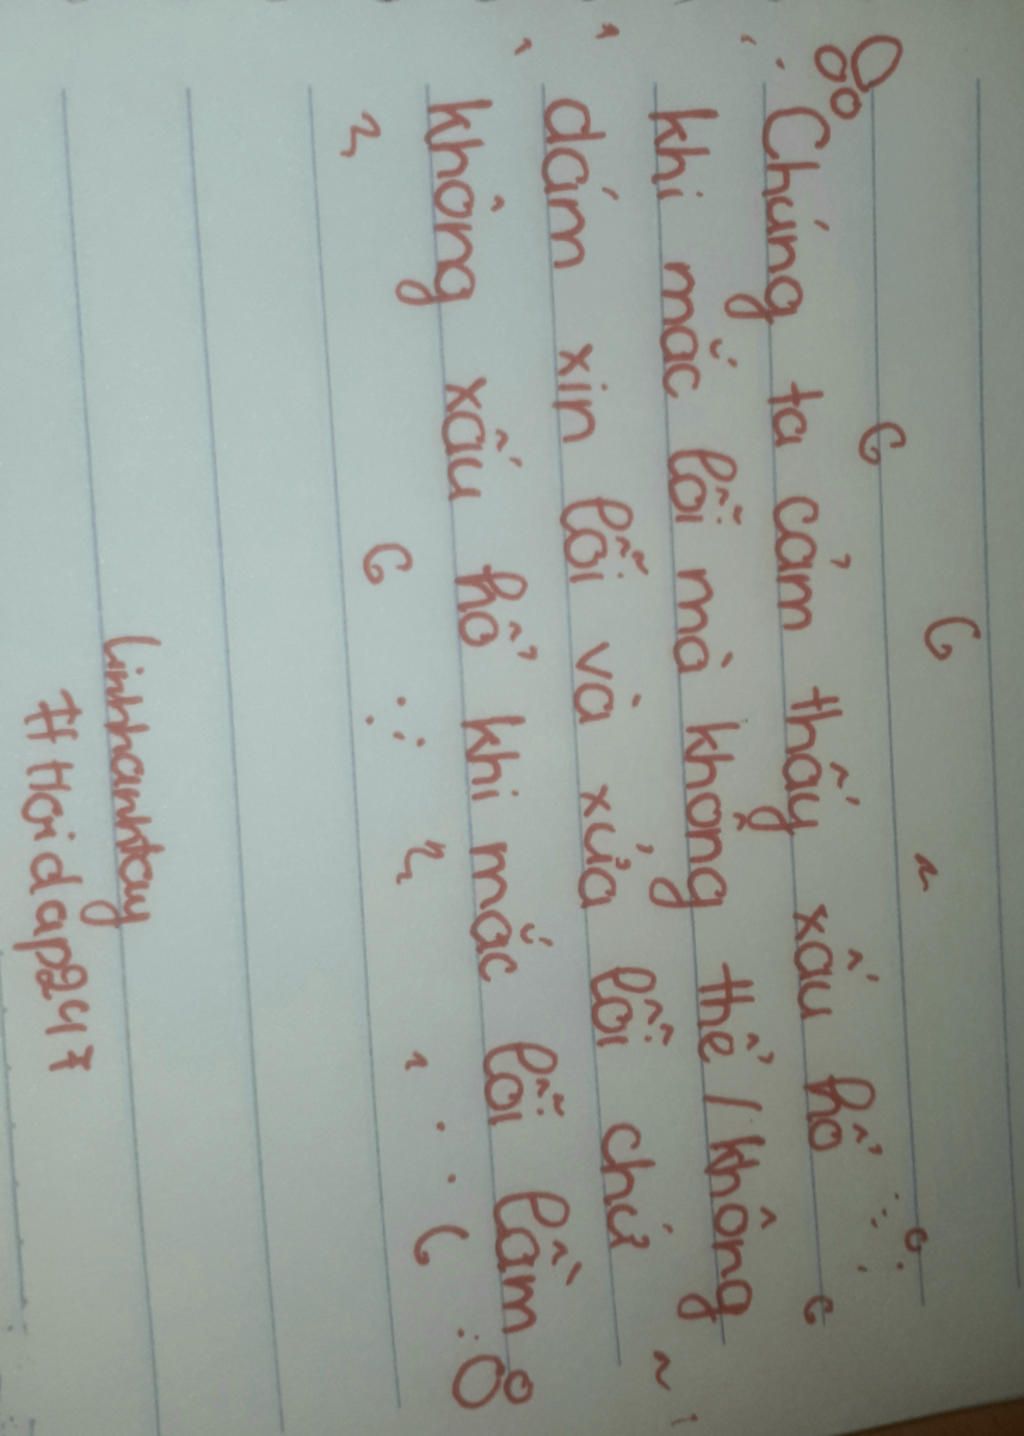 Chúng ta cảm thấy xấu hổ
khi mắc lỗi mà không thể / không
dám xin lỗi và xửa lỗi chứ
không xấu hổ khi mắc lỗi lầm
linhhanhtay
#Hoidap247